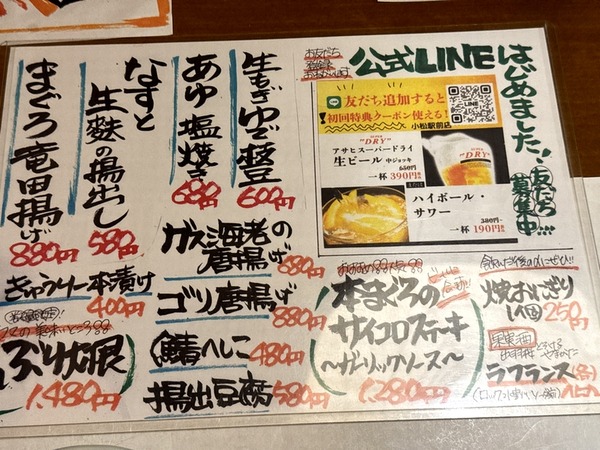 お友だち
公式LINE
はじめました！
友だち
募集中!!!
友だち追加すると
初回特典クーポン使える！
小松駅前店
LINE
SUPER
"DRY"
アサヒスーパードライ
生ビール 中ジョッキ
650円
一杯 390円
SUPER
"DRY"
ハイボール・
サワー
380円
一杯 190円
生もぎゆで豆
600円
あゆ塩焼き
680円
なすと
生麩の揚出し
580円
まぐろ竜田揚げ
880円
ガス海老の
唐揚げ
880円
きゅうり一本漬け
400円
ゴリ唐揚げ
880円
ぶり大根
1,480円
鯖へしこ
480円
揚出豆腐
580円
本まぐろの
サイコロステーキ
〜ガーリックソース〜
1,280円
焼おにぎり
(1個) 250円
果実酒
ラフランス